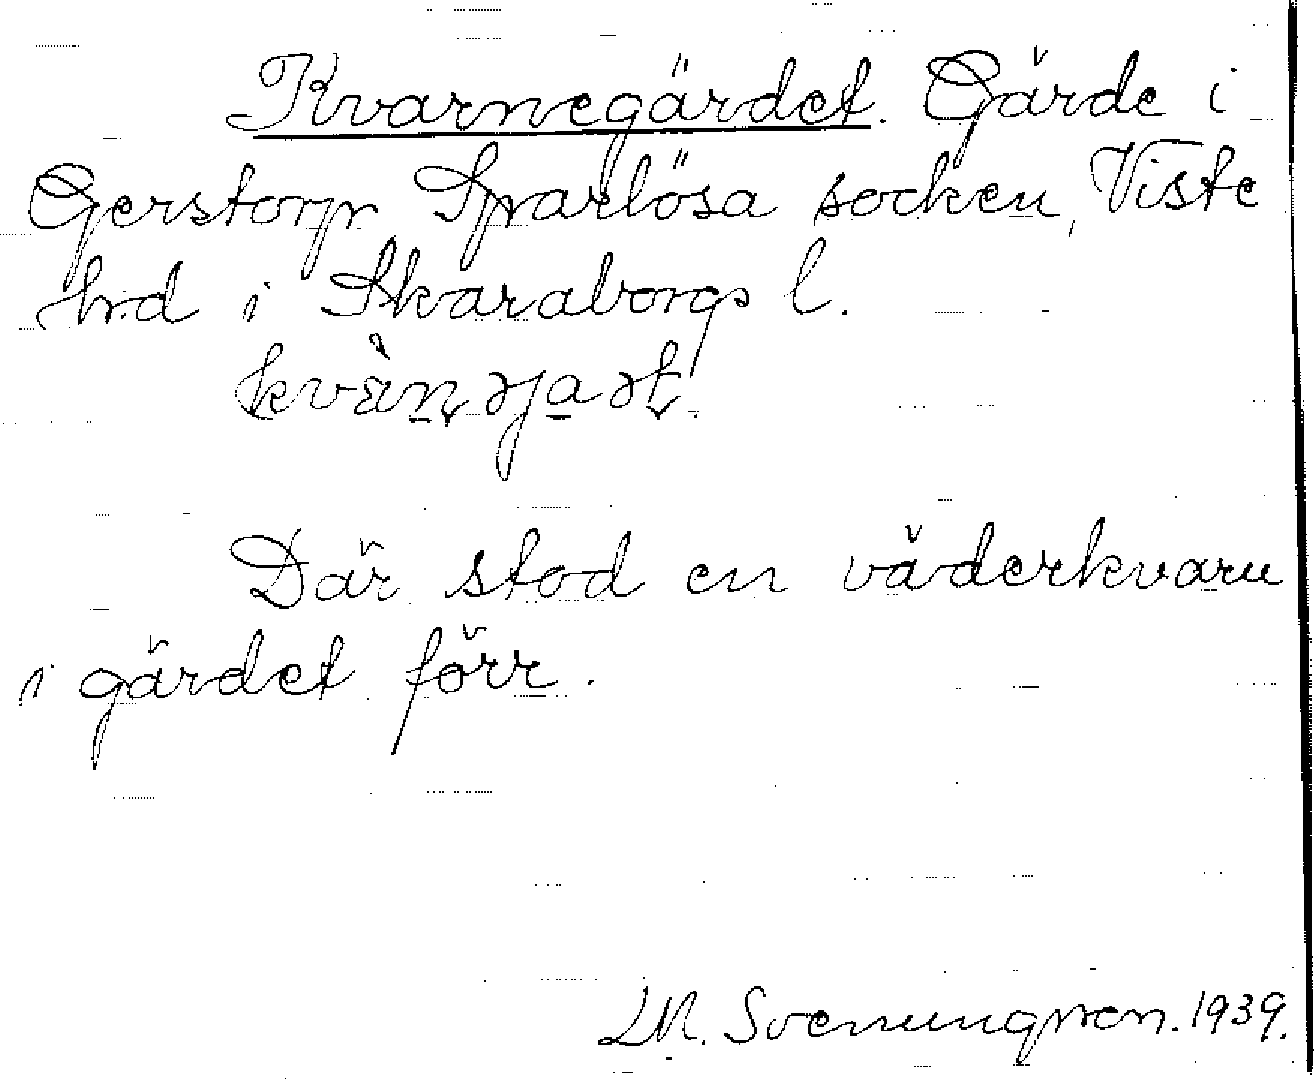 Kvarnegärdet. Gärde i
Gerstorp Sparlösa socken, Viste
hrd i Skaraborgs l.
Där stod en väderkvarn
i gärdet förr.
Svenungsson. 1939.